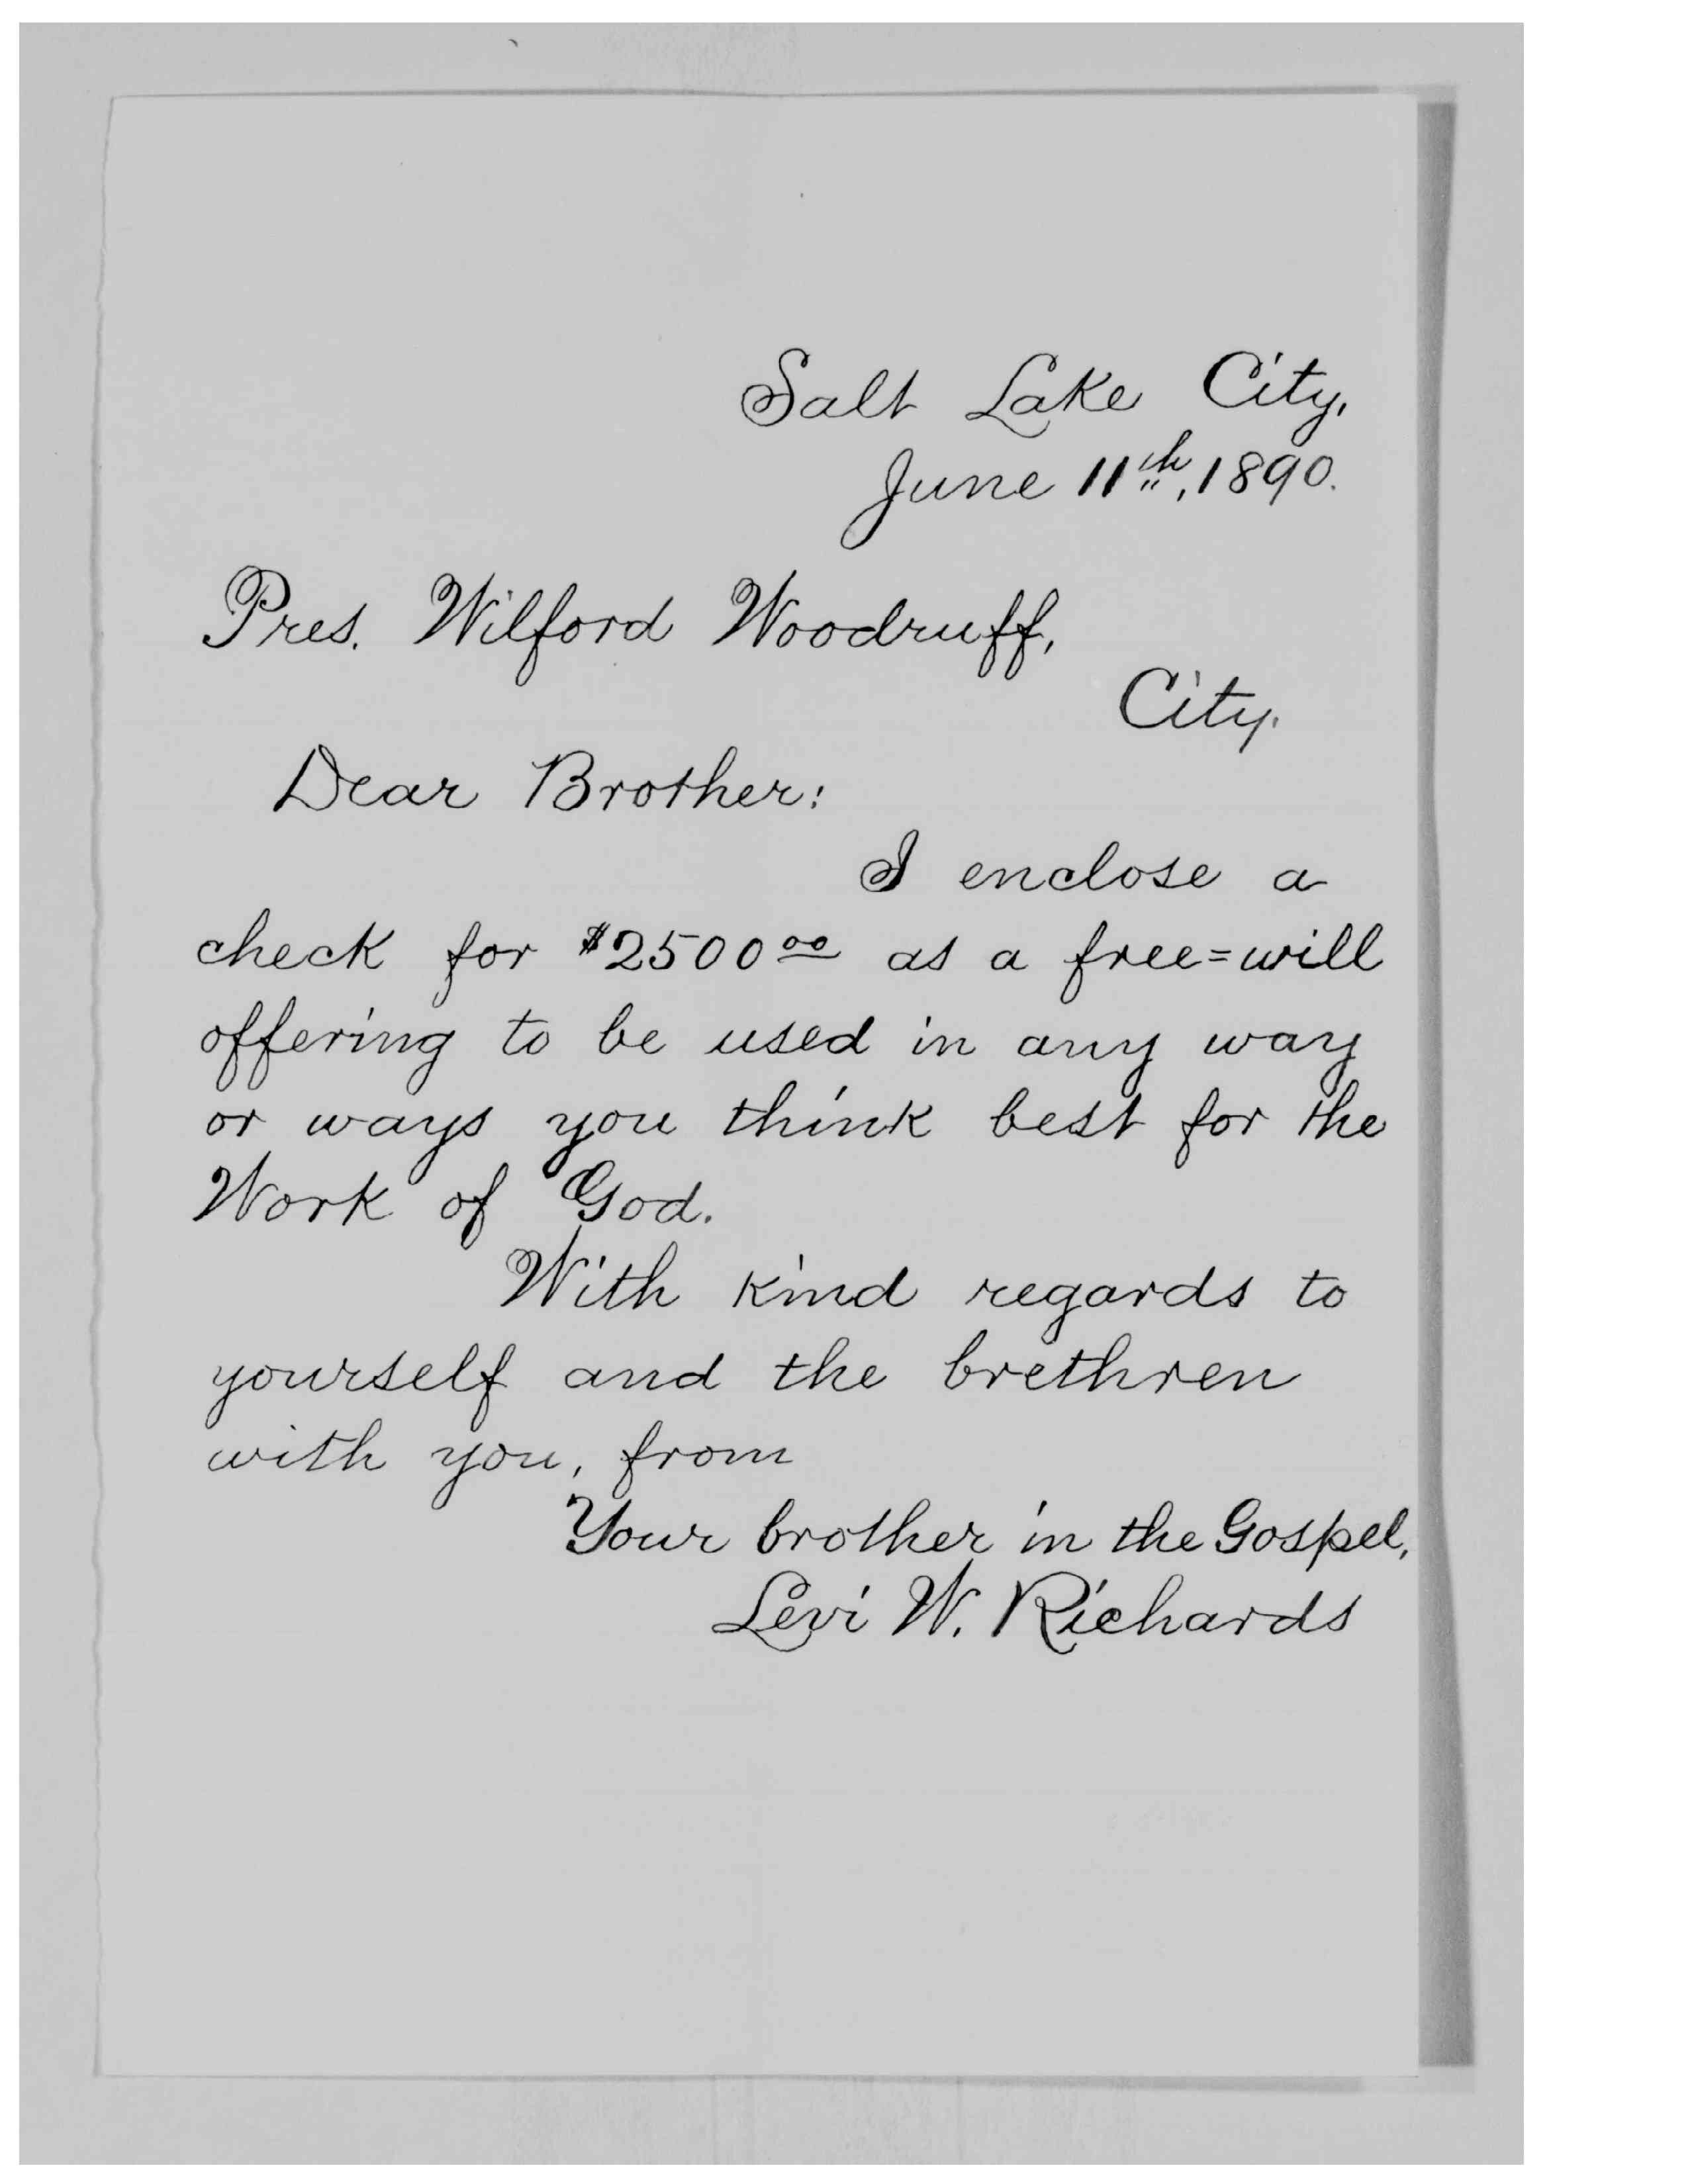 Salt Lake City,
June 11th, 1890.
Pres. Wilford Woodruff,
City.
Dear Brother:
I enclose a
check for $2500 00 as a free=will
offering to be used in any way
or ways you think best for the
Work of God.
With kind regards to
yourself and the brethren
with you, from
Your brother in the Gospel,
Levi W. Richards